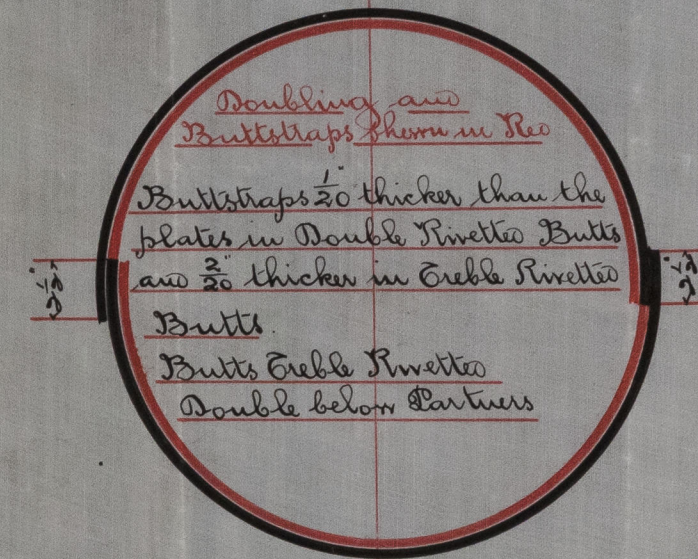 Doubling and
Buttstraps Shewn in Red
Buttstraps 1/20" thicker than the
plates in Double Rivetted Butts
and 2/20" thicker in Treble Rivetted
Butts.
Butts Treble Rivetted
Double below Partners